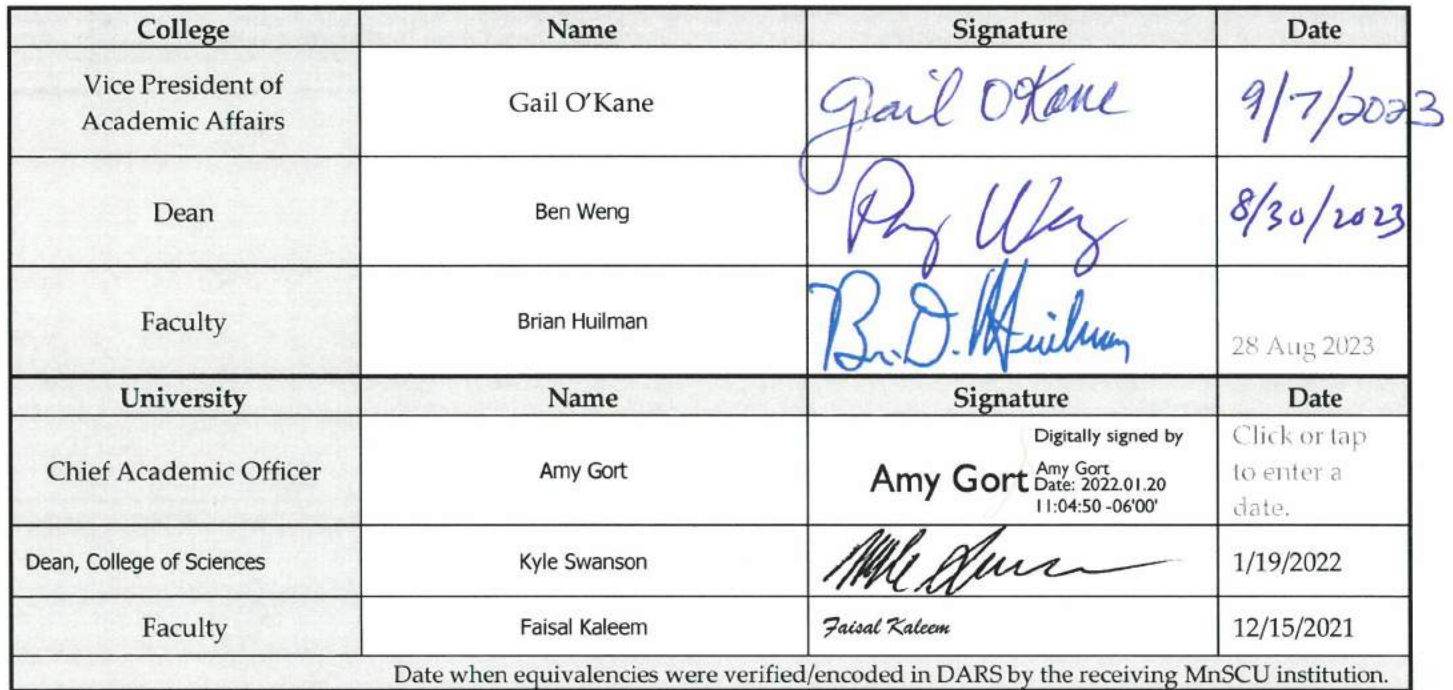 College Name Signature Date
Vice President of
Academic Affairs
Gail O'Kane
Gail O'Kane
9/7/2023
Dean
Ben Weng
8/30/2023
Faculty
Brian Huilman
Br. D. Huilman
28 Aug 2023
University Name Signature Date
Chief Academic Officer
Amy Gort
Amy Gort
Digitally signed by
Amy Gort
Date: 2022.01.20
11:04:50 -06'00'
Click or tap
to enter a
date.
Dean, College of Sciences
Kyle Swanson
1/19/2022
Faculty
Faisal Kaleem
Faisal Kaleem
12/15/2021
Date when equivalencies were verified/encoded in DARS by the receiving MnSCU institution.